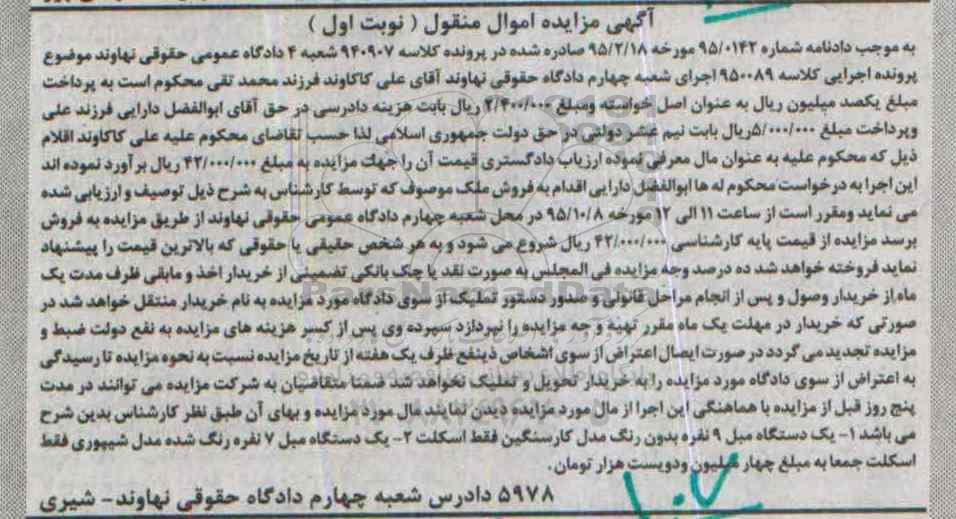 آگهی مزایده اموال منقول ( نوبت اول )
به موجب دادنامه شماره ۹۵/۰۱۴۲ مورخه ۹۵/۲/۱۸ صادره شده در پرونده کلاسه ۹۴۰۹۰۷ شعبه ۴ دادگاه عمومی حقوقی نهاوند موضوع
پرونده اجرایی کلاسه ۹۵۰۰۸۹ اجرای شعبه چهارم دادگاه حقوقی نهاوند آقای علی کاکاوند فرزند محمد تقی محکوم است به پرداخت
مبلغ یکصد میلیون ریال به عنوان اصل خواسته ومبلغ ۲/۴۰۰/۰۰۰ ریال بابت هزینه دادرسی در حق آقای ابوالفضل دارایی فرزند علی
وپرداخت مبلغ ۵/۰۰۰/۰۰۰ریال بابت نیم عشر دولتی در حق دولت جمهوری اسلامی لذا حسب تقاضای محکوم علیه علی کاکاوند اقلام
ذیل که محکوم علیه به عنوان مال معرفی نموده ارزیاب دادگستری قیمت آن را جهت مزایده به مبلغ ۴۲/۰۰۰/۰۰۰ ریال برآورد نموده اند
این اجرا به درخواست محکوم له ها ابوالفضل دارایی اقدام به فروش ملک موصوف که توسط کارشناس به شرح ذیل توصیف و ارزیابی شده
می نماید ومقرر است از ساعت ۱۱ الی ۱۲ مورخه ۹۵/۱۰/۸ در محل شعبه چهارم دادگاه عمومی حقوقی نهاوند از طریق مزایده به فروش
برسد مزایده از قیمت پایه کارشناسی ۴۲/۰۰۰/۰۰۰ ریال شروع می شود و به هر شخص حقیقی یا حقوقی که بالاترین قیمت را پیشنهاد
نماید فروخته خواهد شد ده درصد وجه مزایده فی المجلس به صورت نقد یا چک بانکی تضمینی از خریدار اخذ و مابقی ظرف مدت یک
ماه از خریدار وصول و پس از انجام مراحل قانونی و صدور دستور تملیک از سوی دادگاه مورد مزایده به نام خریدار منتقل خواهد شد در
صورتی که خریدار در مهلت یک ماه مقرر تهیه و جه مزایده را نپردازد سپرده وی پس از کسر هزینه های مزایده به نفع دولت ضبط و
مزایده تجدید می گردد در صورت ایصال اعتراض از سوی اشخاص ذینفع ظرف یک هفته از تاریخ مزایده نسبت به نحوه مزایده تا رسیدگی
به اعتراض از سوی دادگاه مورد مزایده را به خریدار تحویل و تملیک نخواهد شد ضمنا متقاضیان به شرکت مزایده می توانند در مدت
پنج روز قبل از مزایده با هماهنگی این اجرا از مال مورد مزایده دیدن نمایند مال مورد مزایده و بهای آن طبق نظر کارشناس بدین شرح
می باشد ۱- یک دستگاه مبل ۹ نفره بدون رنگ مدل کارسنگین فقط اسکلت ۲- یک دستگاه مبل ۷ نفره رنگ شده مدل شیپوری فقط
اسکلت جمعا به مبلغ چهار میلیون ودویست هزار تومان.
۵۹۷۸ دادرس شعبه چهارم دادگاه حقوقی نهاوند- شیری